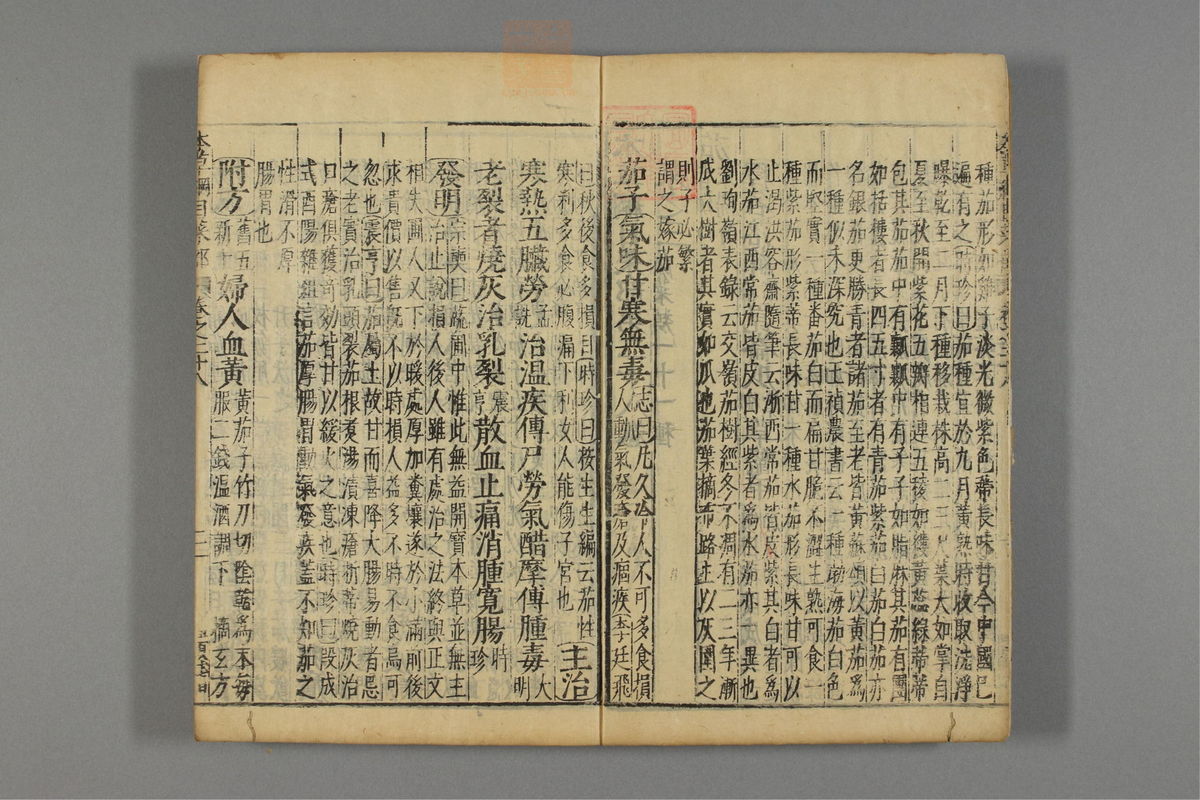 種茄形如雞子淡光微紫色蒂長味甘今中國已
遍有之時珍曰茄種宜於九月黃熟時收取洗淨
曝乾至二月下種移栽株高二三尺葉大如掌自
夏至秋開紫花五瓣相連五稜如縷黃蕊綠蒂蒂
包其茄茄中有瓤瓤中有子子如脂麻其茄有團
如栝樓者長四五寸者有青茄紫茄白茄白茄亦
名銀茄更勝青者諸茄至老皆黃蘇頌以黃茄為
一種似未深究也王禎農書云一種渤海茄白色
而堅實一種番茄白而扁甘脆不澀生熟可食一
種紫茄形紫蒂長味甘一種水茄形長味甘可以
止渴洪容齋隨筆云浙西常茄皆皮紫其白者為
水茄江西常茄皆皮白其紫者為水茄亦一異也
劉恂嶺表錄云交嶺茄樹經冬不凋有二三年漸
成大樹者其實如瓜也茄葉摘布路上以灰圍之
則子必繁
謂之嫁茄
茄子氣味甘寒無毒志曰凡久冷人不可多食損
人動氣發瘡及痼疾李廷飛
曰秋後食多損目時珍曰按生生編云茄性
寒利多食必腹痛下利女人能傷子宮也主治
寒熱五臟勞孟詵治溫疾傳尸勞氣醋摩傅腫毒大明
老裂者燒灰治乳裂震亨散血止痛消腫寬腸時珍
發明宗奭曰蔬圃中惟此無益開寶本草並無主
治止說損人後人雖有處治之法終與正文
相失圃人又下於暖處厚加糞壤遂於小滿前後
求貴價以售既不以時損人益多不時不食烏可
忽也震亨曰茄屬土故甘而喜降大腸易動者忌
之老實治乳頭裂茄根煮湯漬凍瘡折蒂燒灰治
口瘡俱獲奇效皆甘以緩火之意也時珍曰段成
式酉陽雜俎言茄厚腸胃動氣發疾蓋不知茄之
性滑不厚
腸胃也
附方舊五新十婦人血黃黃茄子竹刀切陰乾為末每
服二錢溫酒調下摘玄方